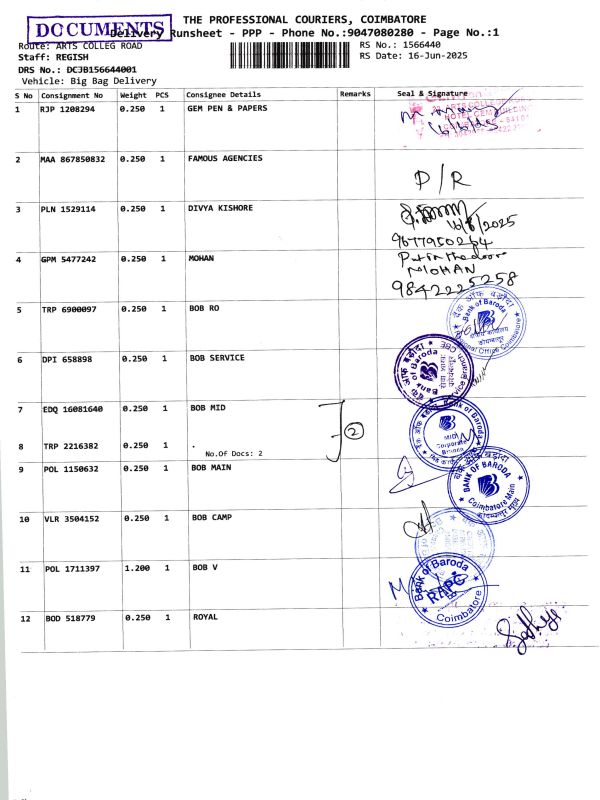 DOCUMENTS
THE PROFESSIONAL COURIERS, COIMBATORE
Delivery Runsheet - PPP - Phone No.:9047080280 - Page No.:1
Route: ARTS COLLEG ROAD
RS No.: 1566440
Staff: REGISH
RS Date: 16-Jun-2025
DRS No.: DCJB156644001
Vehicle: Big Bag Delivery
S No Consignment No Weight PCS Consignee Details Remarks Seal & Signature
1 RJP 1208294 0.250 1 GEM PEN & PAPERS
16/6/25
2 MAA 867850832 0.250 1 FAMOUS AGENCIES
D/R
3 PLN 1529114 0.250 1 DIVYA KISHORE
16/6/2025
4 GPM 5477242 0.250 1 MOHAN
MOHAN
9842225258
5 TRP 6900097 0.250 1 BOB RO
बैंक ऑफ बड़ौदा
Bank of Baroda
6 DPI 658898 0.250 1 BOB SERVICE
Bank of Baroda
7 EDQ 16081640 0.250 1 BOB MID
2
Bank of Baroda
8 TRP 2216382 0.250 1 .
No.Of Docs: 2
9 POL 1150632 0.250 1 BOB MAIN
BANK OF BARODA
Coimbatore Main
10 VLR 3504152 0.250 1 BOB CAMP
11 POL 1711397 1.200 1 BOB V
Bank of Baroda
RAPC
Coimbatore
12 BOD 518779 0.250 1 ROYAL